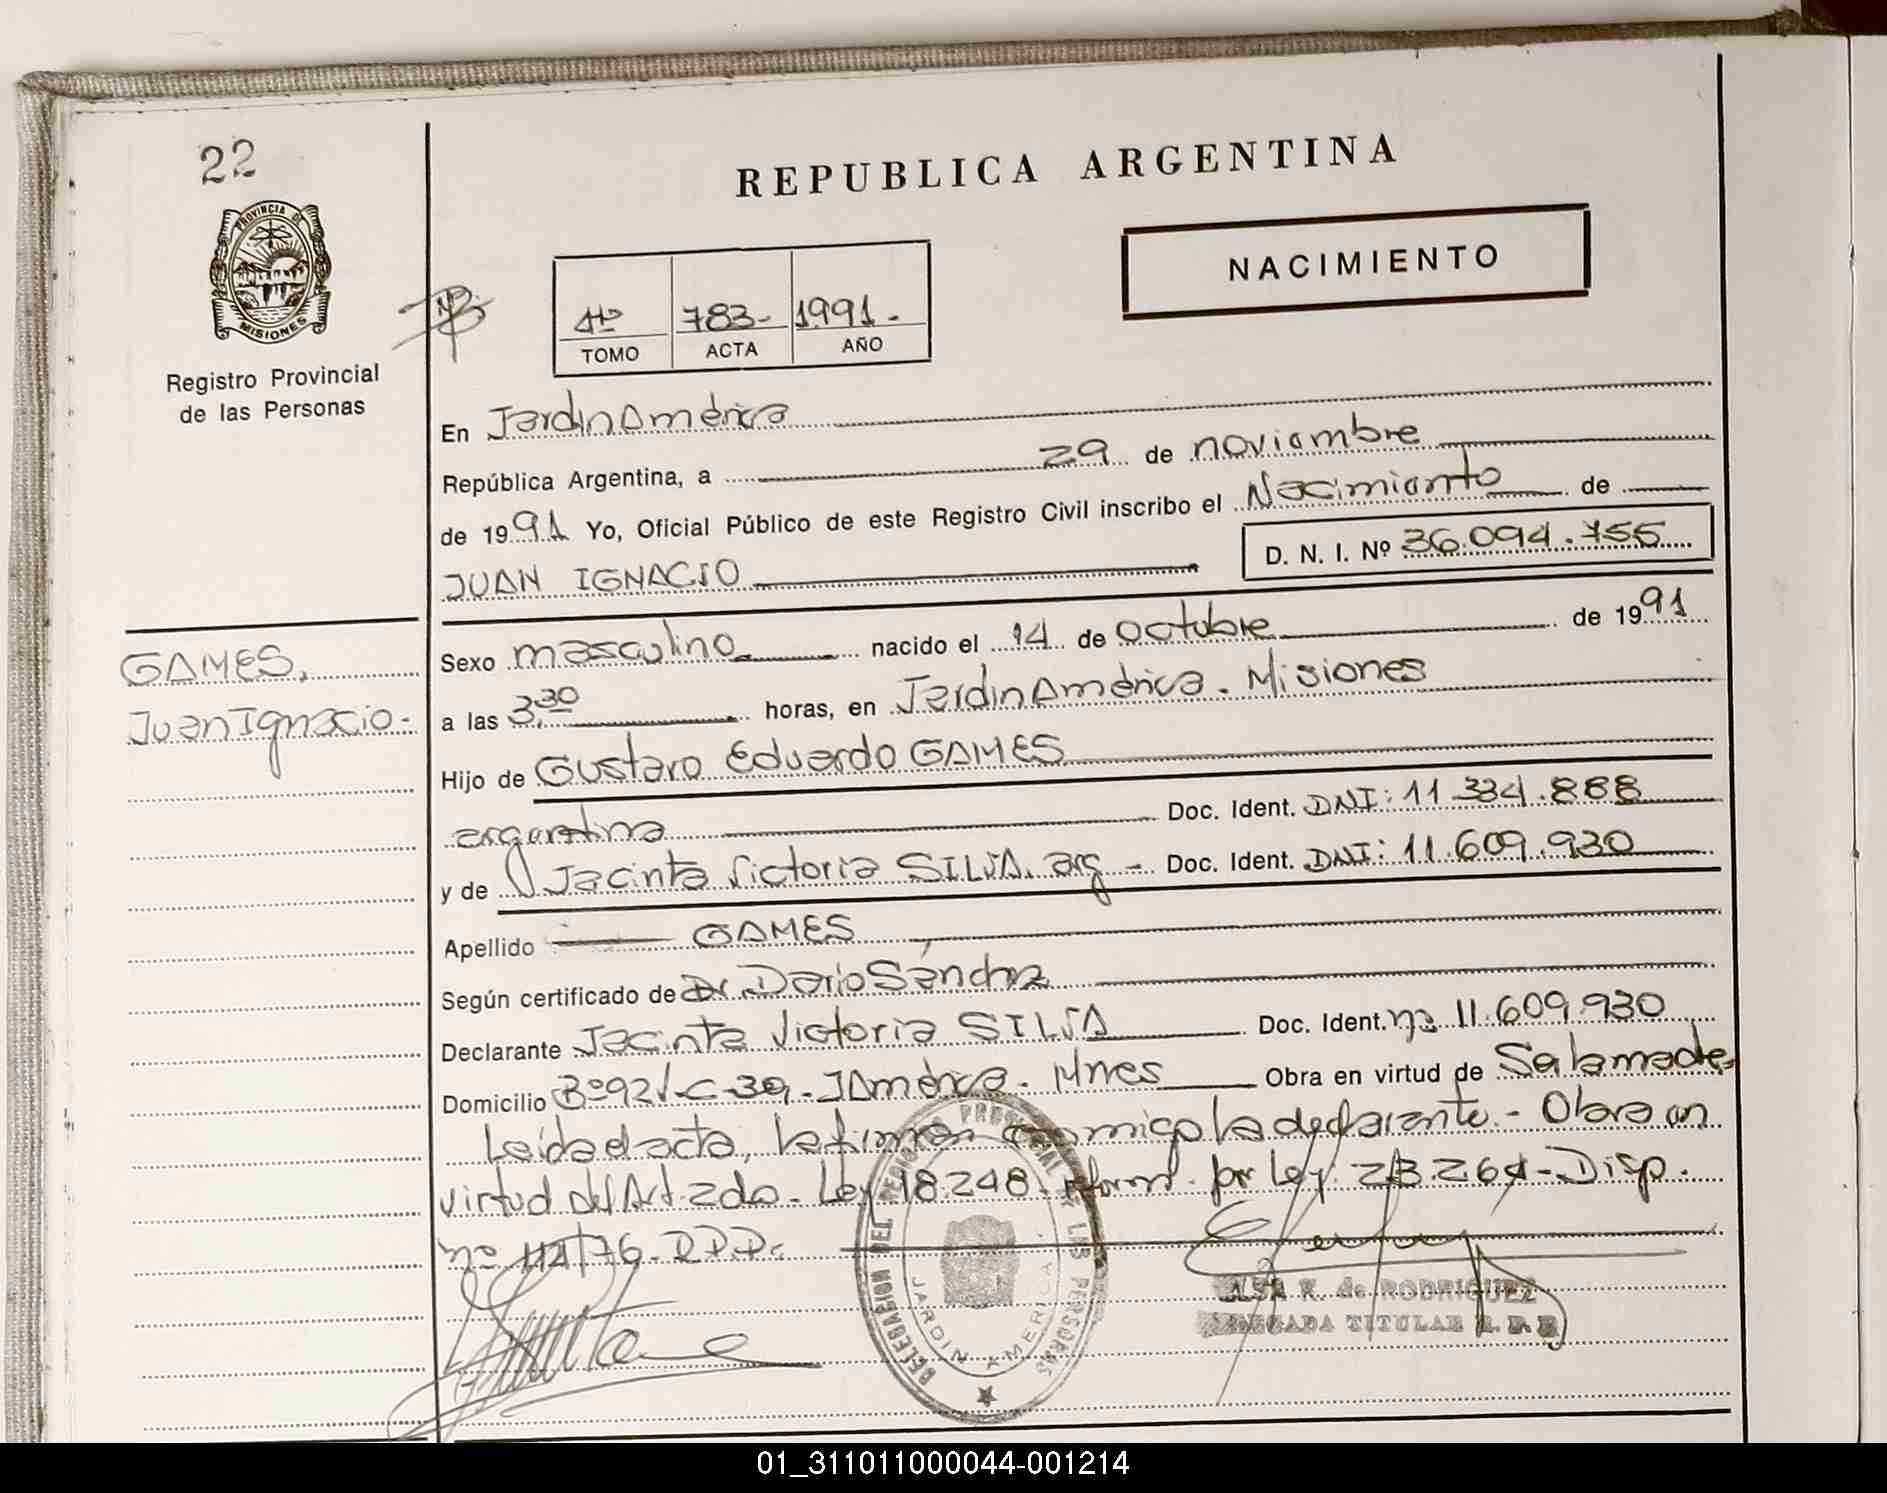 22
PROVINCIA DE
MISIONES
Registro Provincial
de las Personas
REPUBLICA ARGENTINA
NACIMIENTO
4to 783- 1991.-
TOMO ACTA AÑO
En Jardin América
República Argentina, a 29 de noviembre
de 1991 Yo, Oficial Público de este Registro Civil inscribo el Nacimiento de
JUAN IGNACIO D. N. I. Nº 36.094.755
GAMES,
Juan Ignacio.-
Sexo masculino nacido el 14 de octubre de 1991
a las 3,30 horas, en Jardin América. Misiones
Hijo de Gustavo Eduardo GAMES
argentino Doc. Ident. DNI: 11.334.888
y de Jacinta Victoria SILVA. arg.- Doc. Ident. DNI: 11.609.930
Apellido GAMES
Según certificado de Dr. Dario Sánchez
Declarante Jacinta Victoria SILVA Doc. Ident. nº 11.609.930
Domicilio Bº92V-C-39.-J América. Mnes Obra en virtud de Sa la made.
Leída el acta, la firman conmigo la declarante.- Obra en
virtud del Art. 2do. Ley 18.248. reform. por Ley. 23.264-Disp.
nº 114/76.R.P.P.
DELEGACION DEL REGISTRO PROVINCIAL DE LAS PERSONAS
JARDIN AMERICA
K. de RODRIGUEZ
DELEGADA TITULAR R. P. P.
01_311011000044-001214